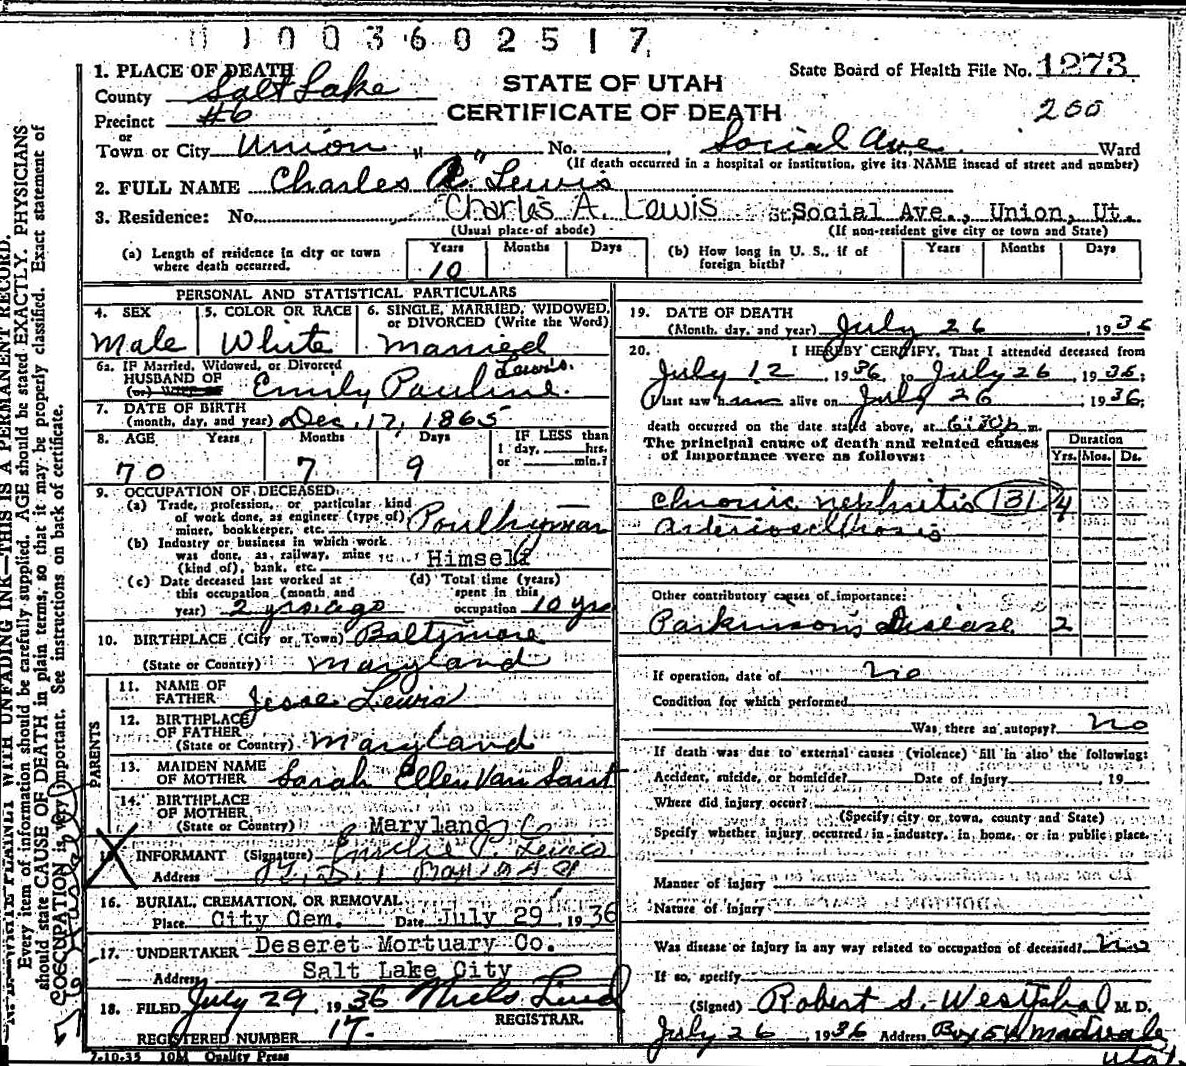 0 1 0 0 3 6 0 2 5 1 7
1. PLACE OF DEATH
County Salt Lake
Precinct #6
or
Town or City Union " " No. Social Ave. Ward
STATE OF UTAH
CERTIFICATE OF DEATH
State Board of Health File No. 1273
200
(If death occurred in a hospital or institution, give its NAME instead of street and number)
2. FULL NAME Charles A. Lewis
3. Residence: No. Charles A. Lewis St. Social Ave., Union, Ut.
(Usual place of abode) (If non-resident give city or town and State)
(a) Length of residence in city or town where death occurred. Years 10 Months Days
(b) How long in U. S., if of foreign birth? Years Months Days
PERSONAL AND STATISTICAL PARTICULARS
4. SEX 5. COLOR OR RACE 6. SINGLE, MARRIED, WIDOWED, or DIVORCED (Write the Word)
Male White Married
6a. IF Married, Widowed, or Divorced
HUSBAND OF Emily Pauline Lewis.
(or) WIFE OF
7. DATE OF BIRTH
(month, day, and year) Dec. 17, 1865
8. AGE Years Months Days IF LESS than
1 day, hrs.
or min.?
70 7 9
9. OCCUPATION OF DECEASED
(a) Trade, profession, or particular kind
of work done, as engineer (type of)
miner, bookkeeper, etc. Poultryman
(b) Industry or business in which work
was done, as, railway, mine
(kind of), bank, etc. Himself
(c) Date deceased last worked at
this occupation (month and
year) 2 yrs. ago
(d) Total time (years)
spent in this
occupation 10 yrs
10. BIRTHPLACE (City or Town) Baltimore
(State or Country) Maryland
PARENTS
11. NAME OF
FATHER Jesse Lewis
12. BIRTHPLACE
OF FATHER
(State or Country) Maryland
13. MAIDEN NAME
OF MOTHER Sarah Ellen Van Sant
14. BIRTHPLACE
OF MOTHER
(State or Country) Maryland
INFORMANT (Signature) Emilie P. Lewis
Address
16. BURIAL, CREMATION, OR REMOVAL
Place City Cem. Date July 29, 1936
17. UNDERTAKER Deseret Mortuary Co.
Address Salt Lake City
18. FILED July 29, 1936 Niels Lind
REGISTRAR.
REGISTERED NUMBER 17.
7-10-35 10M Quality Press
19. DATE OF DEATH
(Month, day, and year) July 26, 1936
20. I HEREBY CERTIFY, That I attended deceased from
July 12 1936, to July 26, 1936;
I last saw h alive on July 26 1936;
death occurred on the date stated above, at 6:30 p. m.
The principal cause of death and related causes
of importance were as follows: Duration
Yrs. Mos. Ds.
Chronic nephritis 131 4
Arteriosclerosis
Other contributory causes of importance:
Parkinson's Disease 2
If operation, date of No
Condition for which performed
Was there an autopsy? No
If death was due to external causes (violence) fill in also the following:
Accident, suicide, or homicide? Date of injury , 19
Where did injury occur?
(Specify city or town, county and State)
Specify whether injury occurred in industry, in home, or in public place.
Manner of injury
Nature of injury
Was disease or injury in any way related to occupation of deceased? No
If so, specify
(Signed) Robert S. Westphal M. D.
July 26, 1936 Address Box 54 Midvale
Utah
WRITE PLAINLY WITH UNFADING INK—THIS IS A PERMANENT RECORD.
Every item of information should be carefully supplied. AGE should be stated EXACTLY. PHYSICIANS
should state CAUSE OF DEATH in plain terms, so that it may be properly classified. Exact statement of
OCCUPATION is very important. See instructions on back of certificate.